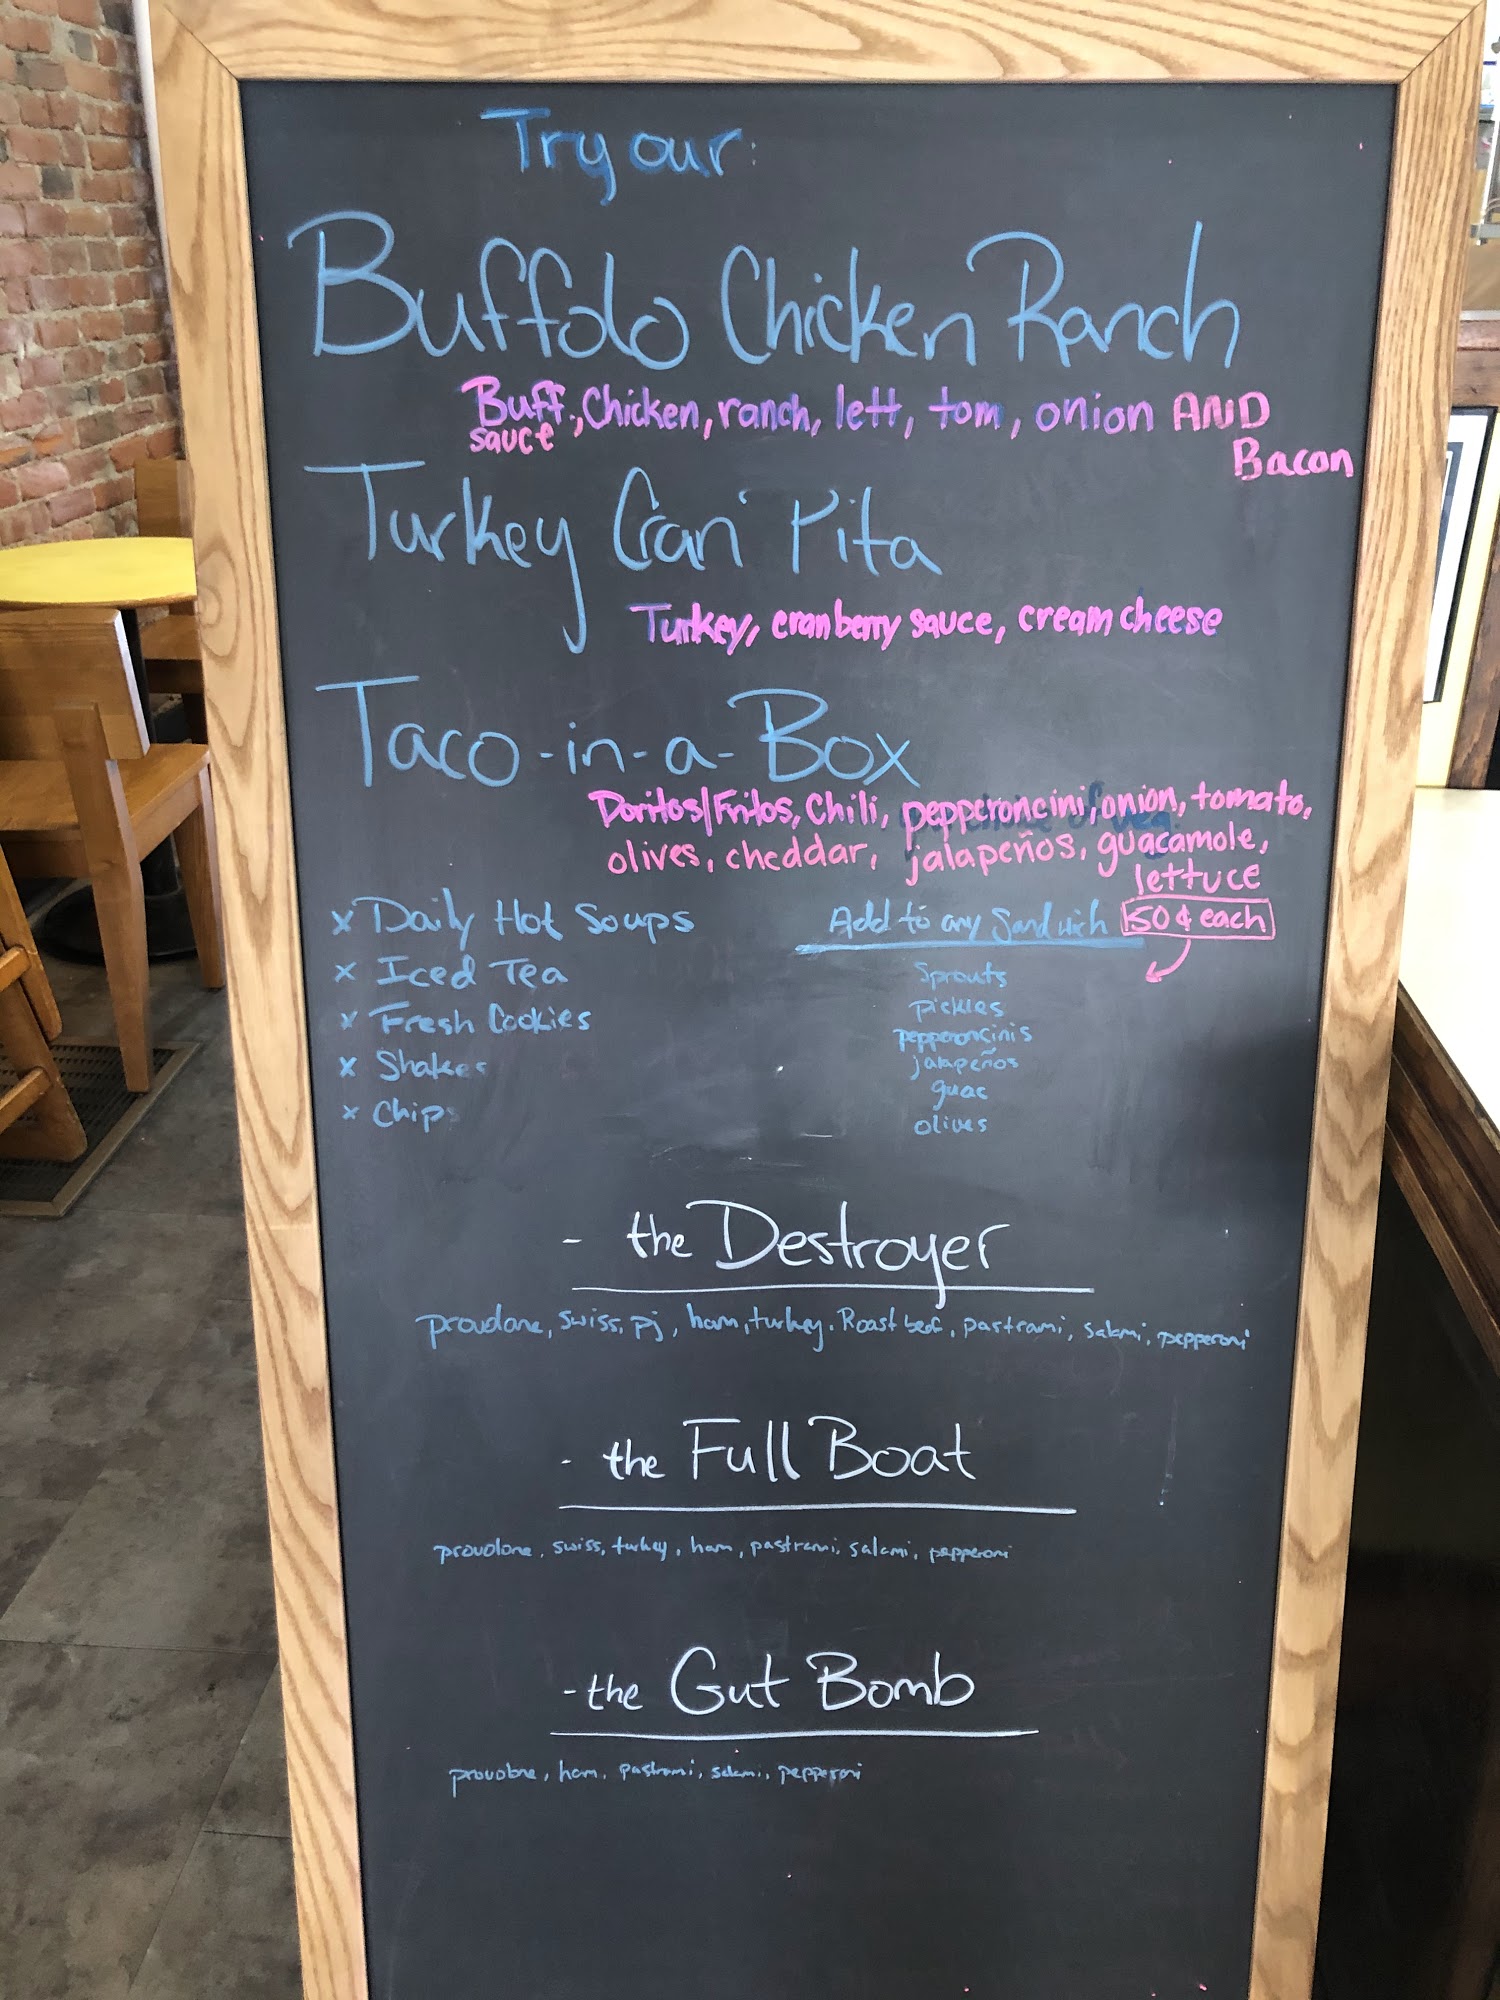 Try our:
Buffalo Chicken Ranch
Buff., Chicken, ranch, lett, tom, onion AND
sauce
Bacon
Turkey Cran Pita
Turkey, cranberry sauce, cream cheese
Taco-in-a-Box
Doritos/Fritos, Chili, pepperoncini, onion, tomato,
olives, cheddar, jalapeños, guacamole,
lettuce
x Daily Hot Soups
x Iced Tea
x Fresh Cookies
x Shakes
x Chips
Add to any Sandwich 50¢ each
Sprouts
pickles
pepperoncinis
jalapeños
guac
olives
- the Destroyer
provolone, swiss, pj, ham, turkey, Roast beef, pastrami, salami, pepperoni
- the Full Boat
provolone, swiss, turkey, ham, pastrami, salami, pepperoni
- the Gut Bomb
provolone, ham, pastrami, salami, pepperoni